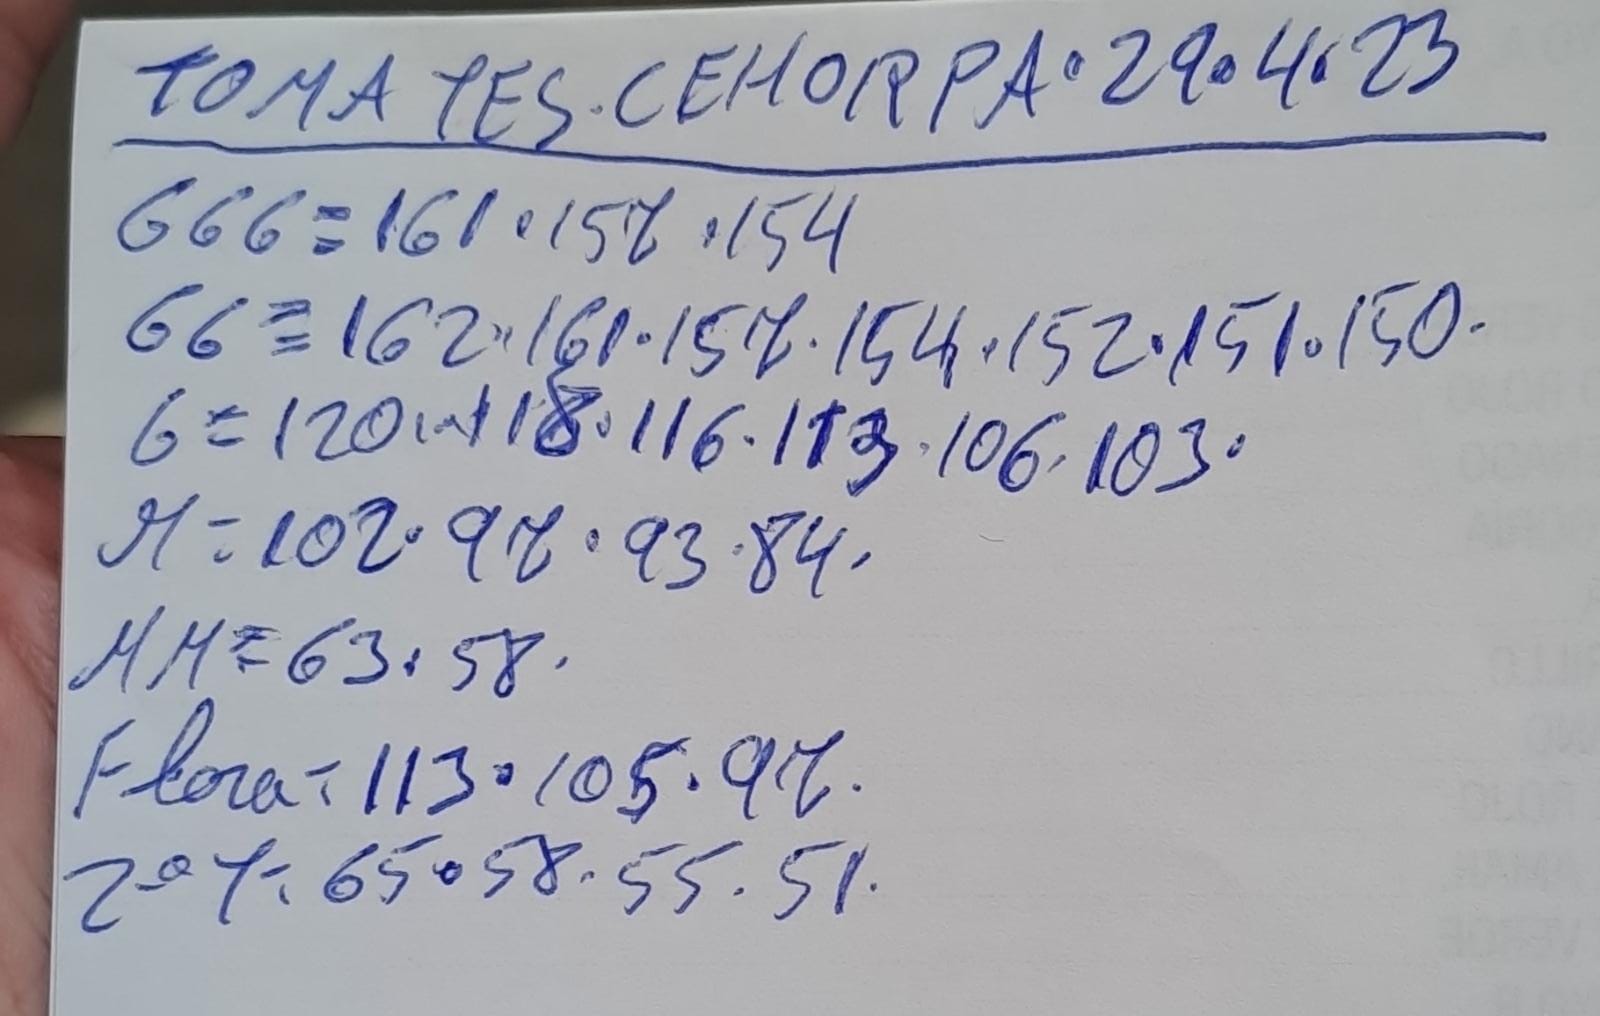 TOMATES. CEHORPA. 29.4.23
GGG = 161.157.154
GG = 162.161.157.154.152.151.150.
G = 120.118.116.113.106.103.
M = 102.97.93.84.
MM = 63.58.
Flora = 113.105.97.
65.58.55.51.